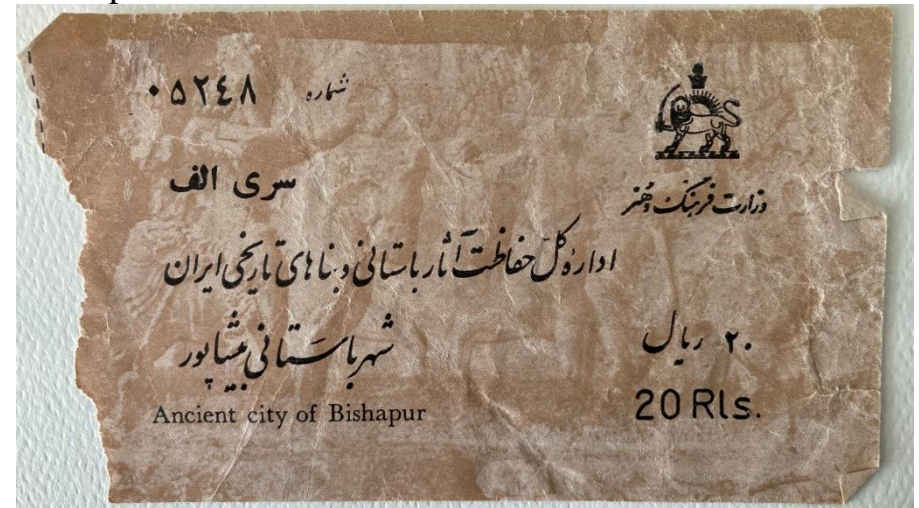 شماره ۰۵۲۴۸
سری الف
وزارت فرهنگ و هنر
اداره کل حفاظت آثار باستانی و بناهای تاریخی ایران
شهر باستانی بیشاپور
Ancient city of Bishapur
۲۰ ریال
20 Rls.